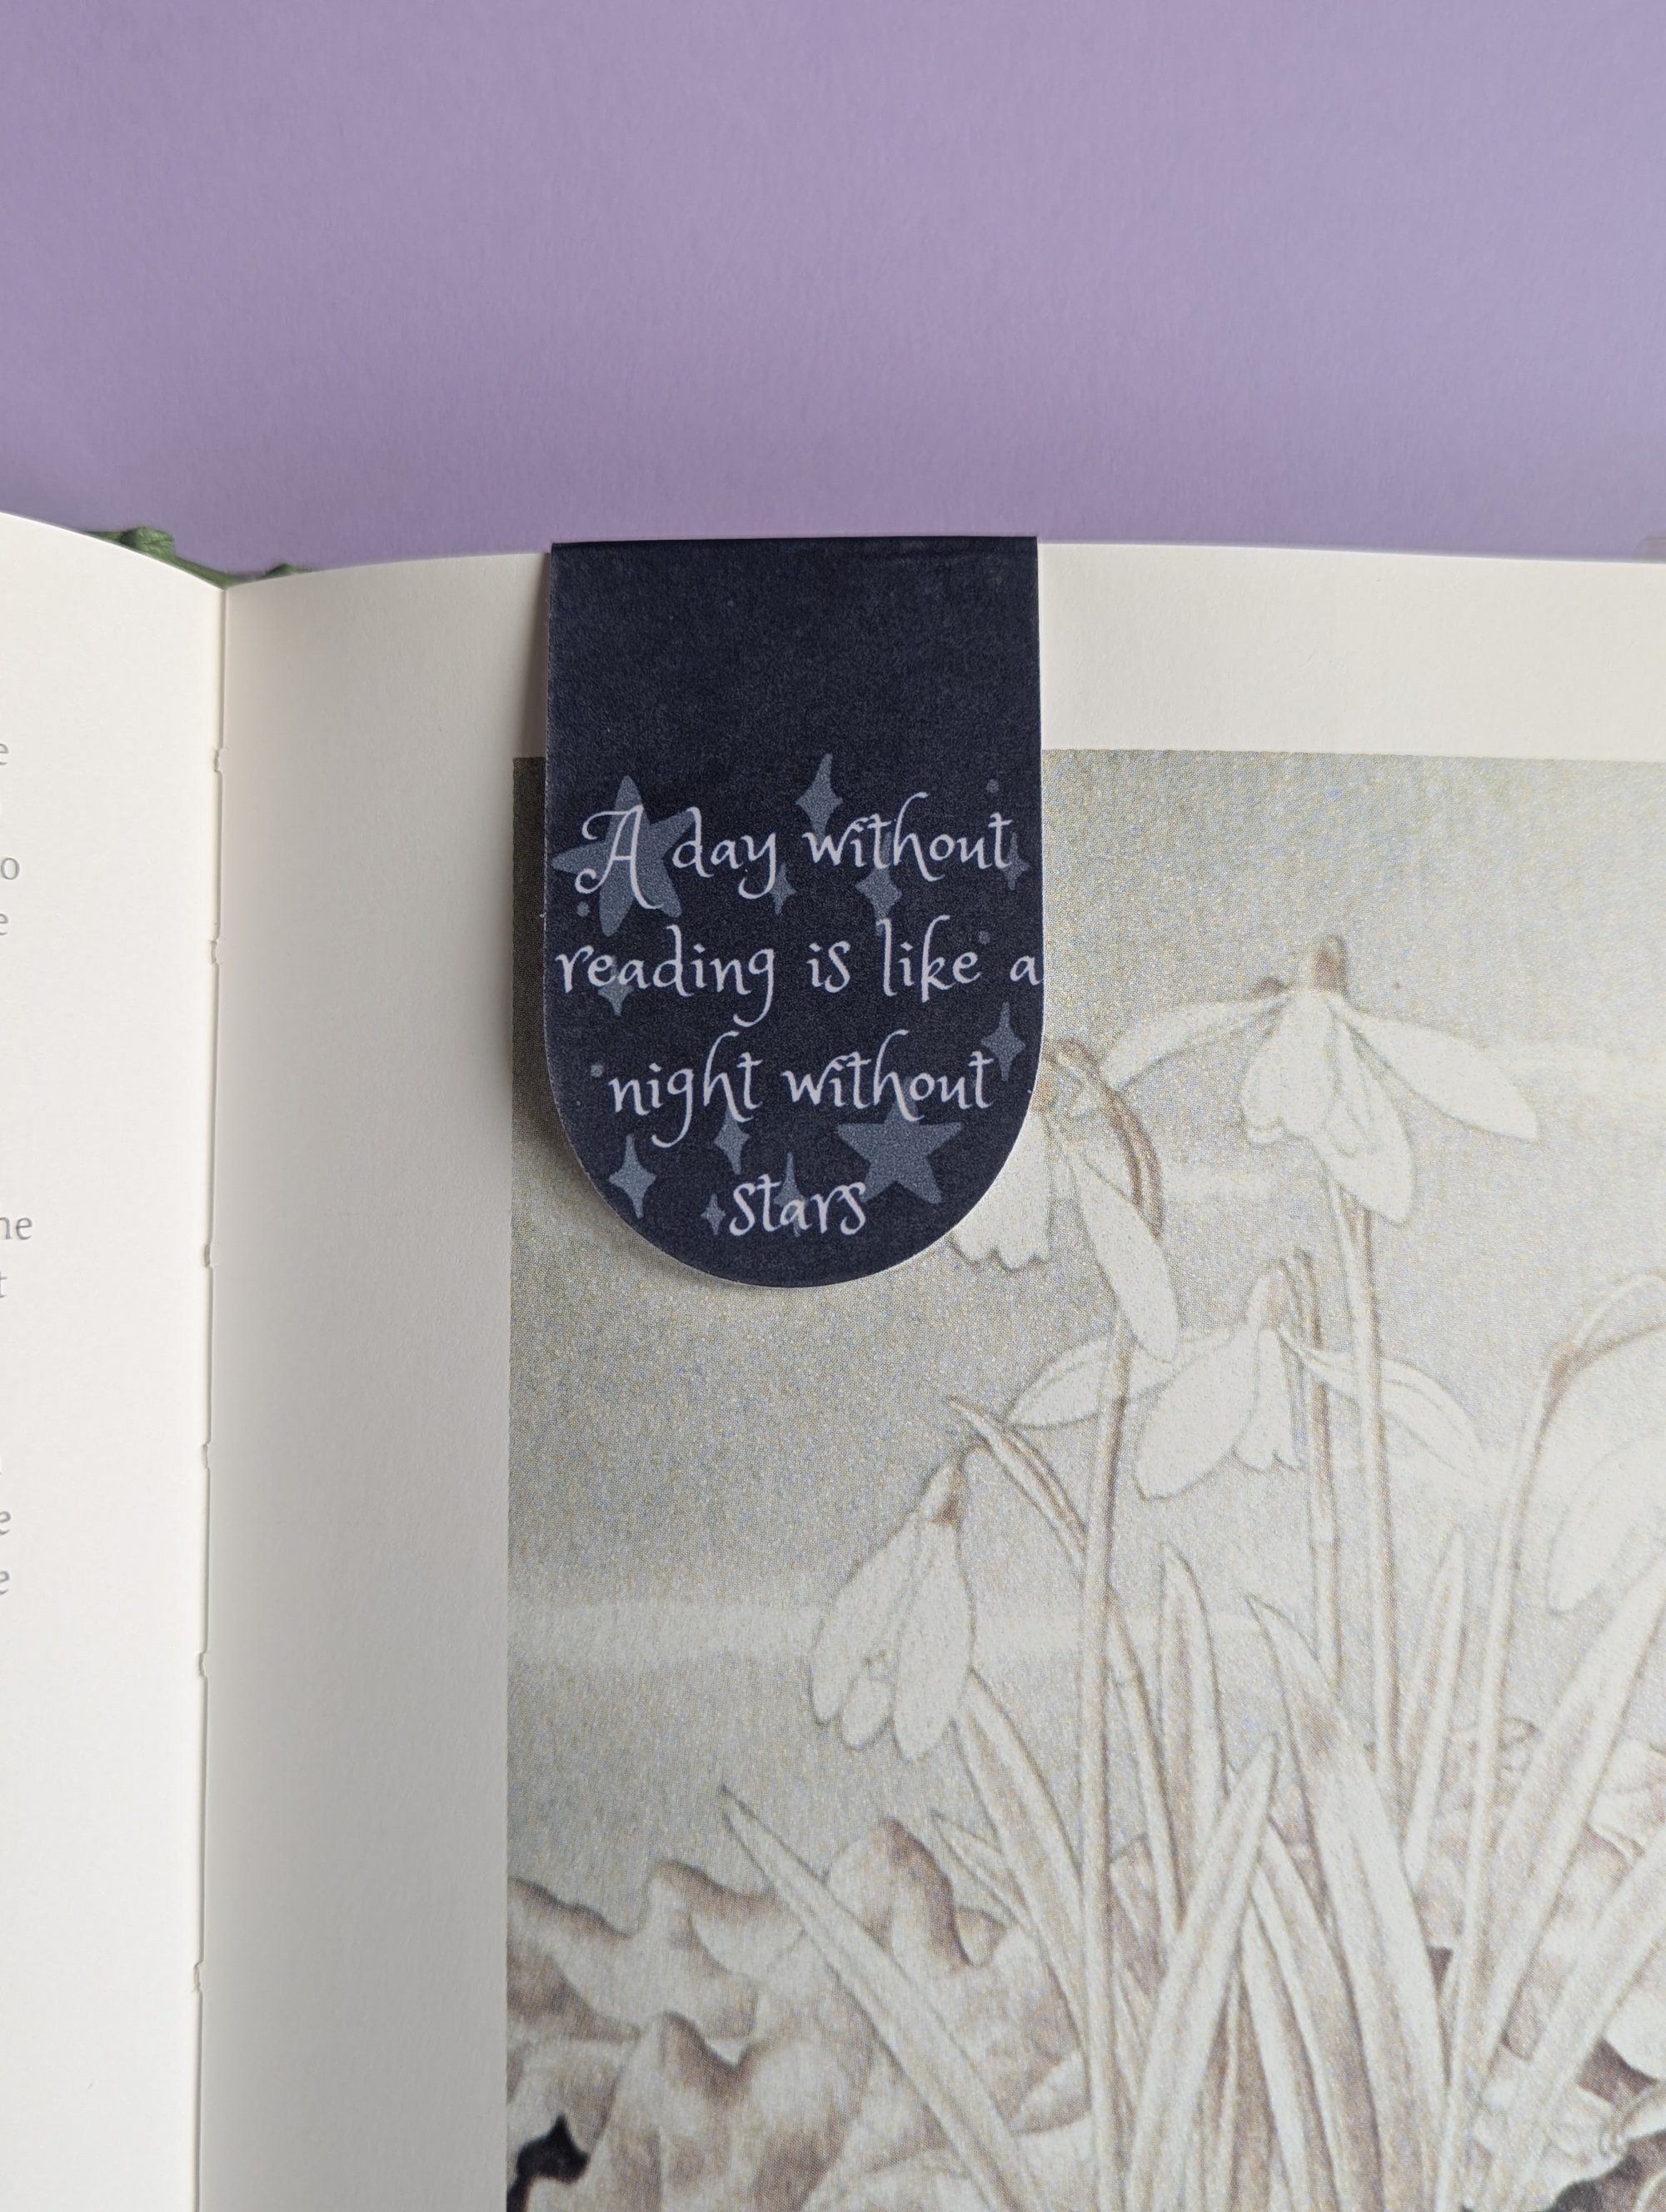 A day without
reading is like a
night without
stars